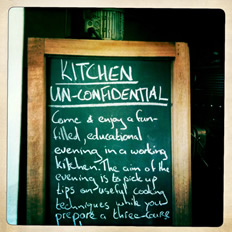 KITCHEN
UN-CONFIDENTIAL
Come & enjoy a fun-
filled, educational
evening in a working
kitchen. The aim of the
evening is to pick up
tips on useful cooking
techniques while you
prepare a three-course